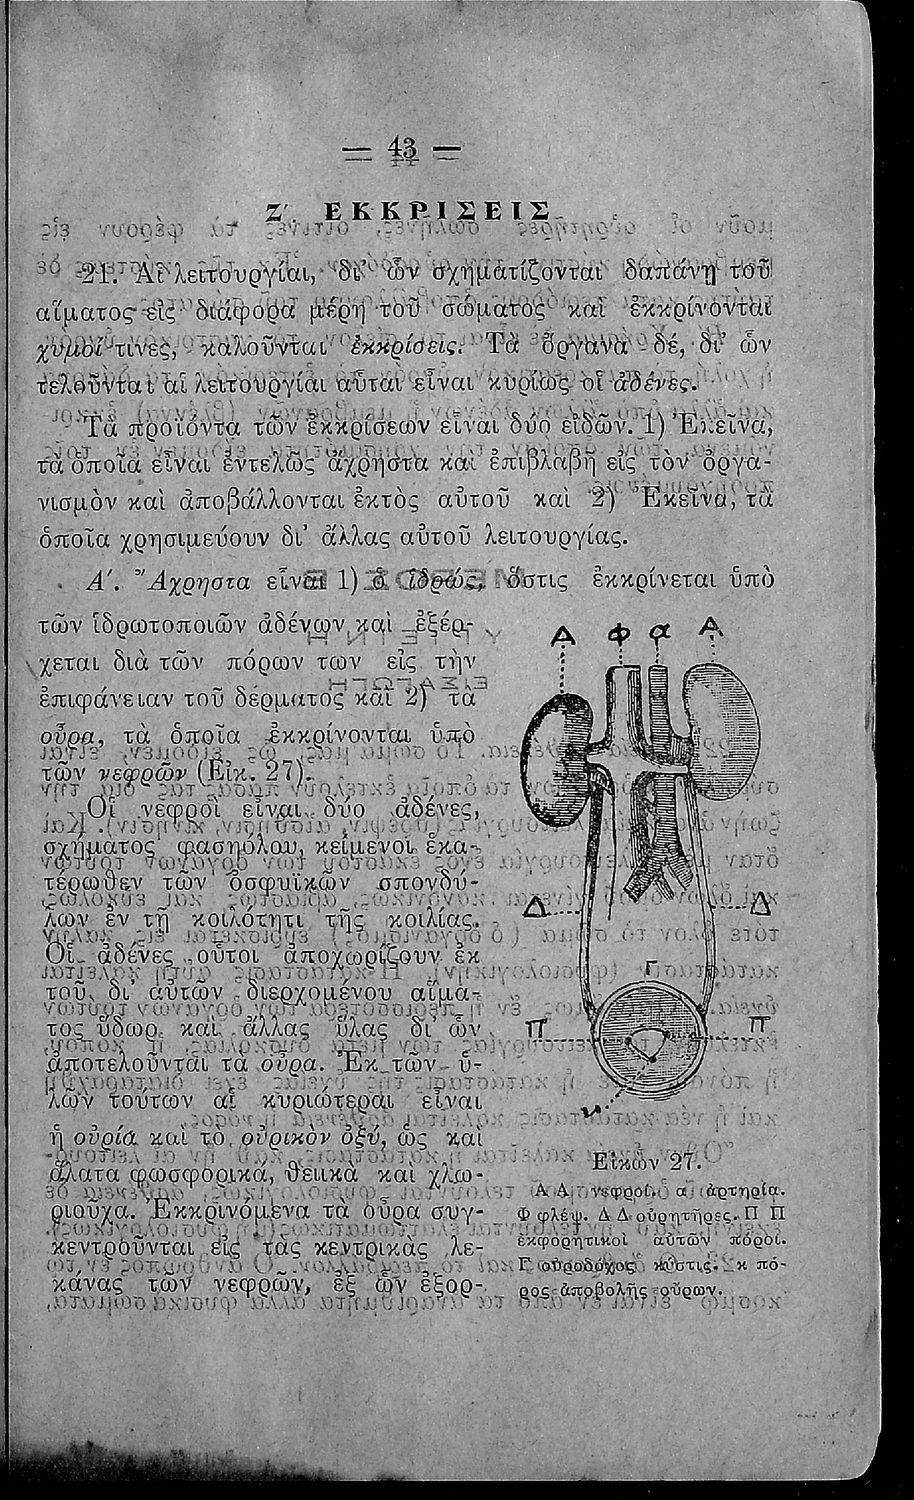 — 43 —
Ζ΄. ΕΚΚΡΙΣΕΙΣ
21. Αἱ λειτουργίαι, δι' ὧν σχηματίζονται δαπάνῃ τοῦ
αἵματος εἰς διάφορα μέρη τοῦ σώματος καὶ ἐκκρίνονται
χυμοί τινες, καλοῦνται ἐκκρίσεις. Τὰ ὄργανα δέ, δι' ὧν
τελοῦνται αἱ λειτουργίαι αὗται εἶναι κυρίως οἱ ἀδένες.
Τὰ προϊόντα τῶν ἐκκρίσεων εἶναι δύο εἰδῶν. 1) Ἐκεῖνα,
τὰ ὁποῖα εἶναι ἐντελῶς ἄχρηστα καὶ ἐπιβλαβῆ εἰς τὸν ὀργα-
νισμὸν καὶ ἀποβάλλονται ἐκτὸς αὐτοῦ καὶ 2) Ἐκεῖνα, τὰ
ὁποῖα χρησιμεύουν δι' ἄλλας αὐτοῦ λειτουργίας.
Α΄. Ἄχρηστα εἶναι 1) ὁ ἱδρώς, ὅστις ἐκκρίνεται ὑπὸ
τῶν ἱδρωτοποιῶν ἀδένων καὶ ἐξέρ-
χεται διὰ τῶν πόρων των εἰς τὴν
ἐπιφάνειαν τοῦ δέρματος καὶ 2) τὰ
οὖρα, τὰ ὁποῖα ἐκκρίνονται ὑπὸ
τῶν νεφρῶν (Εἰκ. 27).
Οἱ νεφροὶ εἶναι δύο ἀδένες,
σχήματος φασηόλου, κείμενοι ἑκα-
τέρωθεν τῶν ὀσφυϊκῶν σπονδύ-
λων ἐν τῇ κοιλότητι τῆς κοιλίας.
Οἱ ἀδένες οὗτοι ἀποχωρίζουν ἐκ
τοῦ δι' αὐτῶν διερχομένου αἵμα-
τος ὕδωρ καὶ ἄλλας ὕλας δι' ὧν
ἀποτελοῦνται τὰ οὖρα. Ἐκ τῶν ὑ-
λῶν τούτων αἱ κυριώτεραι εἶναι
ἡ οὐρία καὶ τὸ οὐρικὸν ὀξύ, ὡς καὶ
ἅλατα φωσφορικά, θειικὰ καὶ χλω-
ριοῦχα. Ἐκκρινόμενα τὰ οὖρα συγ-
κεντροῦνται εἰς τὰς κεντρικὰς λε-
κάνας τῶν νεφρῶν, ἐξ ὧν ἐξορ-
Α Φ α Α
Δ Δ
Γ
Π Π
κ
Εἰκὼν 27.
Α Α νεφροί. α ἀρτηρία.
Φ φλέψ. Δ Δ οὐρητῆρες. Π Π
ἐκφορητικοὶ αὐτῶν πόροι.
Γ οὐροδόχος κύστις. κ πό-
ρος ἀποβολῆς οὔρων.